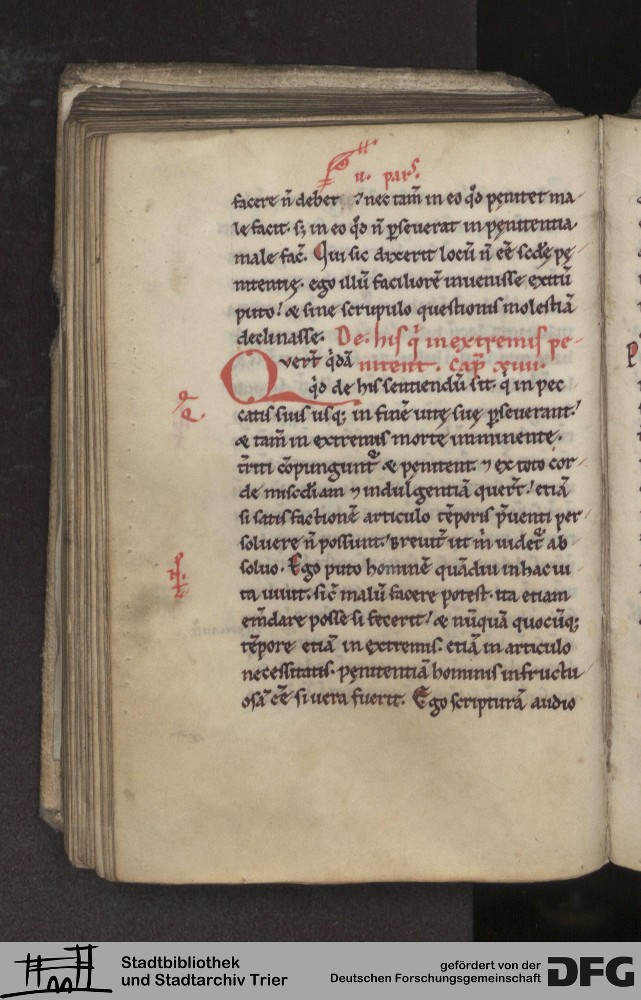 ii. pars.
facere n̄ debet. ⁊ nec tam̄ in eo qd̄ pęnitet ma-
le facit. s; in eo qd̄ n̄ ꝑseuerat in pęnitentia
male fac̄. Qui sic dixerit locū n̄ ēē scd̄ę pę-
nitentię. ego illū faciliorē inuenisse exitū
puto! & sine scrupulo questionis molestiā
declinasse. De. his q̇ in extremis pe-
Quer̄t q̇dā nitent. Cap̄. xiiii.
qd̄ de his sentiendū sit. q̇ in pec-
catis suis usq; in finē uitę suę ꝑseuerant!
& tam̄ in extremis morte imminente.
t̄riti cōpungunt᷑ & pęnitent. ⁊ ex toto cor-
de misc̄diam ⁊ indulgentiā quer̄t! etiā
si satisfactionē articulo tēporis p̄uenti per-
soluere n̄ possunt. Breuit̄ ut m̄ uidet᷑ ab-
soluo. Ego puto hominē quādiu in hac ui-
ta uiuit. sic̄ malū facere potest. ita etiam
em̄dare posse si fecerit! & nūquā quocūq;
tēpore etiā in extremis. etiā in articulo
necessitatis. pęnitentiā hominis infructu-
osā ēē si uera fuerit. Ego scripturā audio
Stadtbibliothek
und Stadtarchiv Trier
gefördert von der
Deutschen Forschungsgemeinschaft
DFG